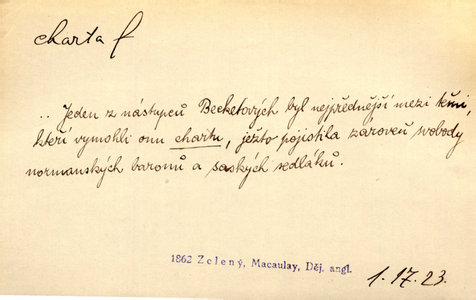 charta f
.. Jeden z nástupců Becketových byl nejpřednější mezi těmi,
kteří vymohli onu chartu, ježto pojistila zároveň svobody
normanských baronů a saských sedláků.
1862 Zelený, Macaulay, Děj. angl.
1.17.23.